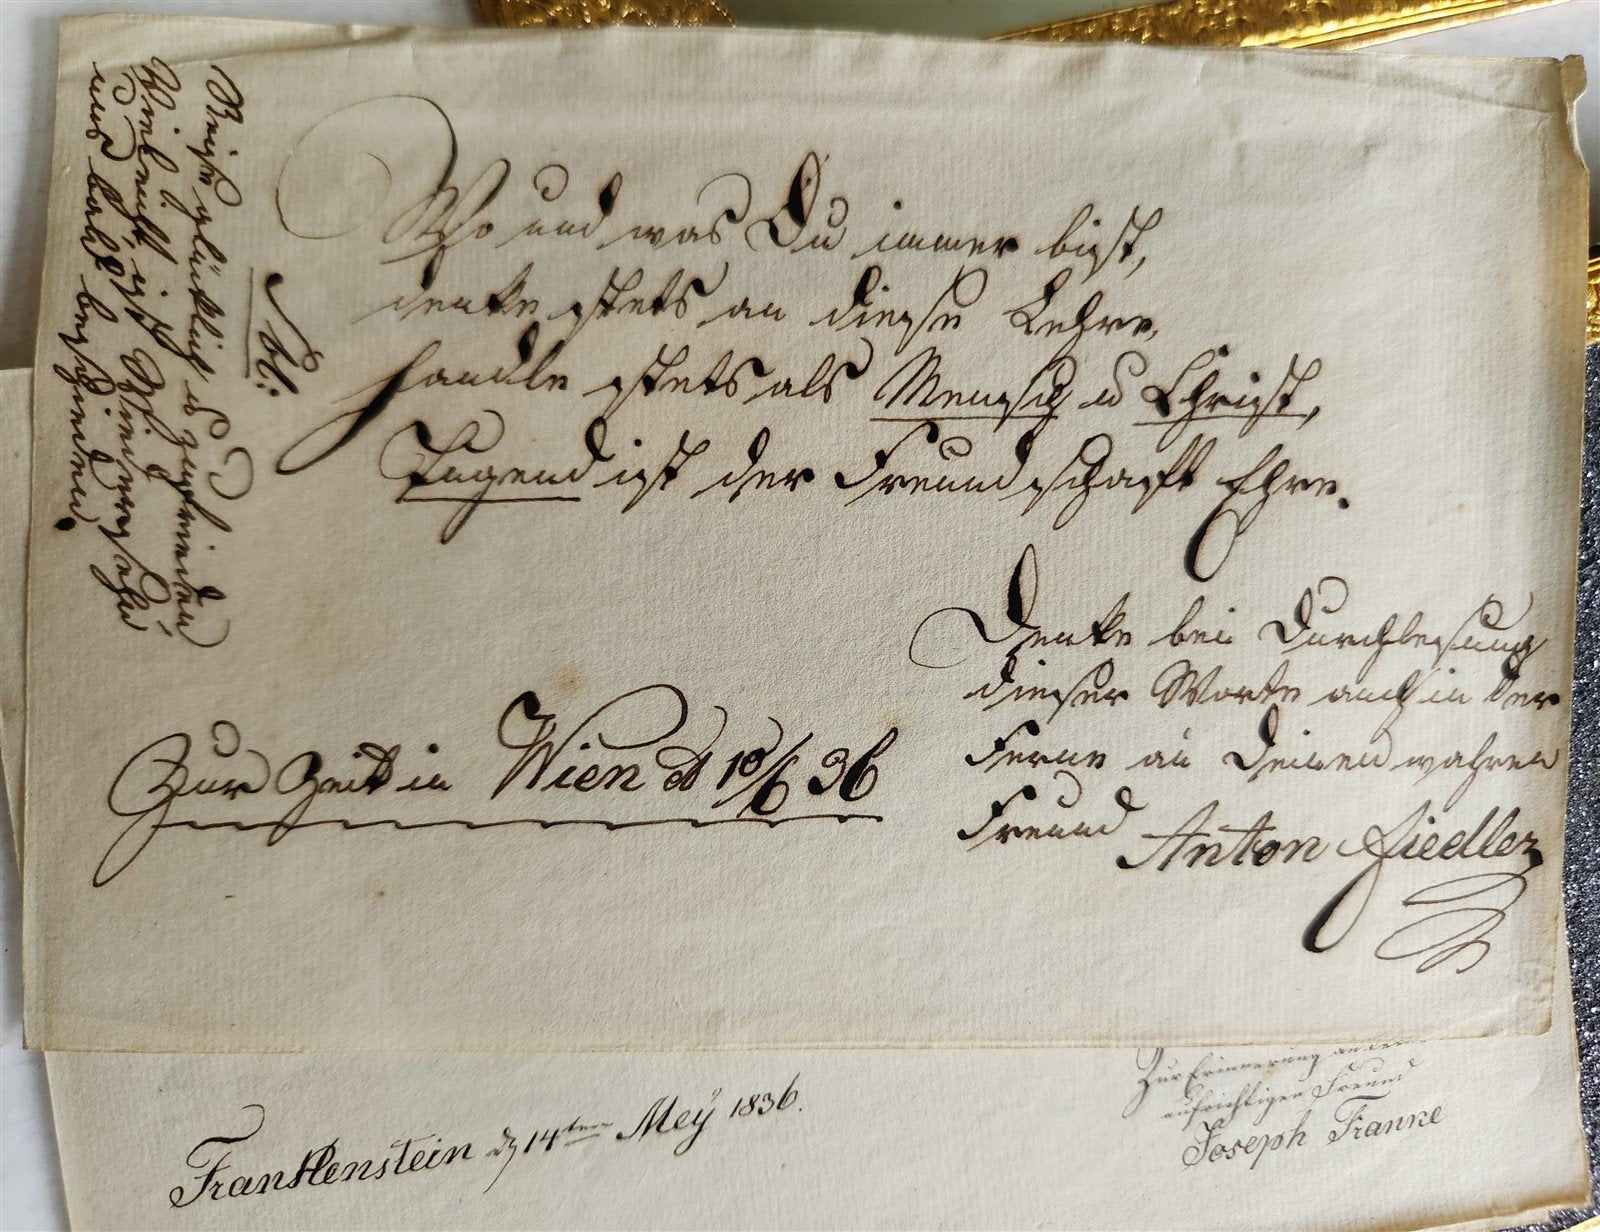 Wo und was Du immer bist,
denke stets an diese Lehre,
handle stets als Mensch u Christ,
Tugend ist der Freundschaft Ehre.
Denke bei Durchlesung
dieser Worte auch in der
Ferne an Deinen wahren
Freund Anton Fiedler
Zur Zeit in Wien d 18/6 36
Nb:
Reise glücklich u zufrieden
Vieleicht ist Wiedersehn
uns bald beschieden.
Frankenstein d 14ten Mey 1836.
Zur Erinnerung an
aufrichtigen Freund
Joseph Franke